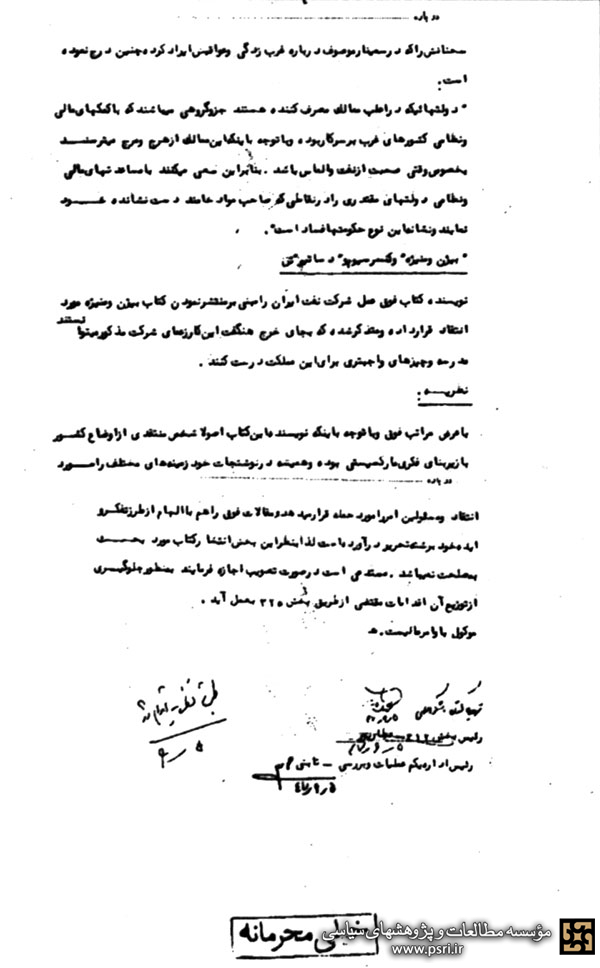 درباره
سخنانش را که در سمینار موصوف درباره غرب زدگی وعواقبش ایراد کرده چنین درج نموده
است:
" دولتهائیکه در اغلب ممالک مصرف کننده هستند جزو گروهی میباشند که با کمکهای مالی
ونظامی کشورهای غرب بر سر کار بوده وبا توجه باینکه این ممالک از هرج ومرج میترسند
بخصوص وقتی صحبت از نفت والماس باشد . بنابراین سعی میکنند با مساعدتهای مالی
ونظامی دولتهای مقتدری را در نقاطی که صاحب مواد خامند دست نشانده خود
نمایند ونشانه این نوع حکومتها فساد است".
" بیژن ومنیژه" وکنسرسیوم"
نویسنده کتاب فوق عمل شرکت نفت ایران را مبنی بر منتشر نمودن کتاب بیژن ومنیژه مورد
انتقاد قرار داده ومتذکر شده که بجای خرج هنگفت این کار زعمای شرکت مذکور میتوانستند
مدرسه وچیزهای واجبتری برای این مملکت درست کنند .
نظریه :
با عرض مراتب فوق وبا توجه باینکه نویسنده این کتاب اصولا شخص منتقدی از اوضاع کشور
با زیربنای فکری مارکسیستی بوده وهمیشه در نوشتجات خود زمینه های مختلف را مورد
درباره
انتقاد ومسئولین امور را مورد حمله قرار میدهد ومقالات فوق را هم با الهام از طرز تفکر و
ایده خود برشته تحریر درآورده است لذا بنظر این بخش انتشار کتاب مورد بحث
بمصلحت نمیباشد . مستدعی است در صورت تصویب اجازه فرمایند بمنظور جلوگیری
از توزیع آن اقدامات مقتضی از طریق بخش ۳۲۵ بعمل آید .
موکول باوامر عالیست. هـ
رئیس بخش ۳۱۲
رئیس اداره یکم عملیات وبررسی – ثابتی
خیلی محرمانه
مؤسسه مطالعات و پژوهشهای سیاسی
www.psri.ir